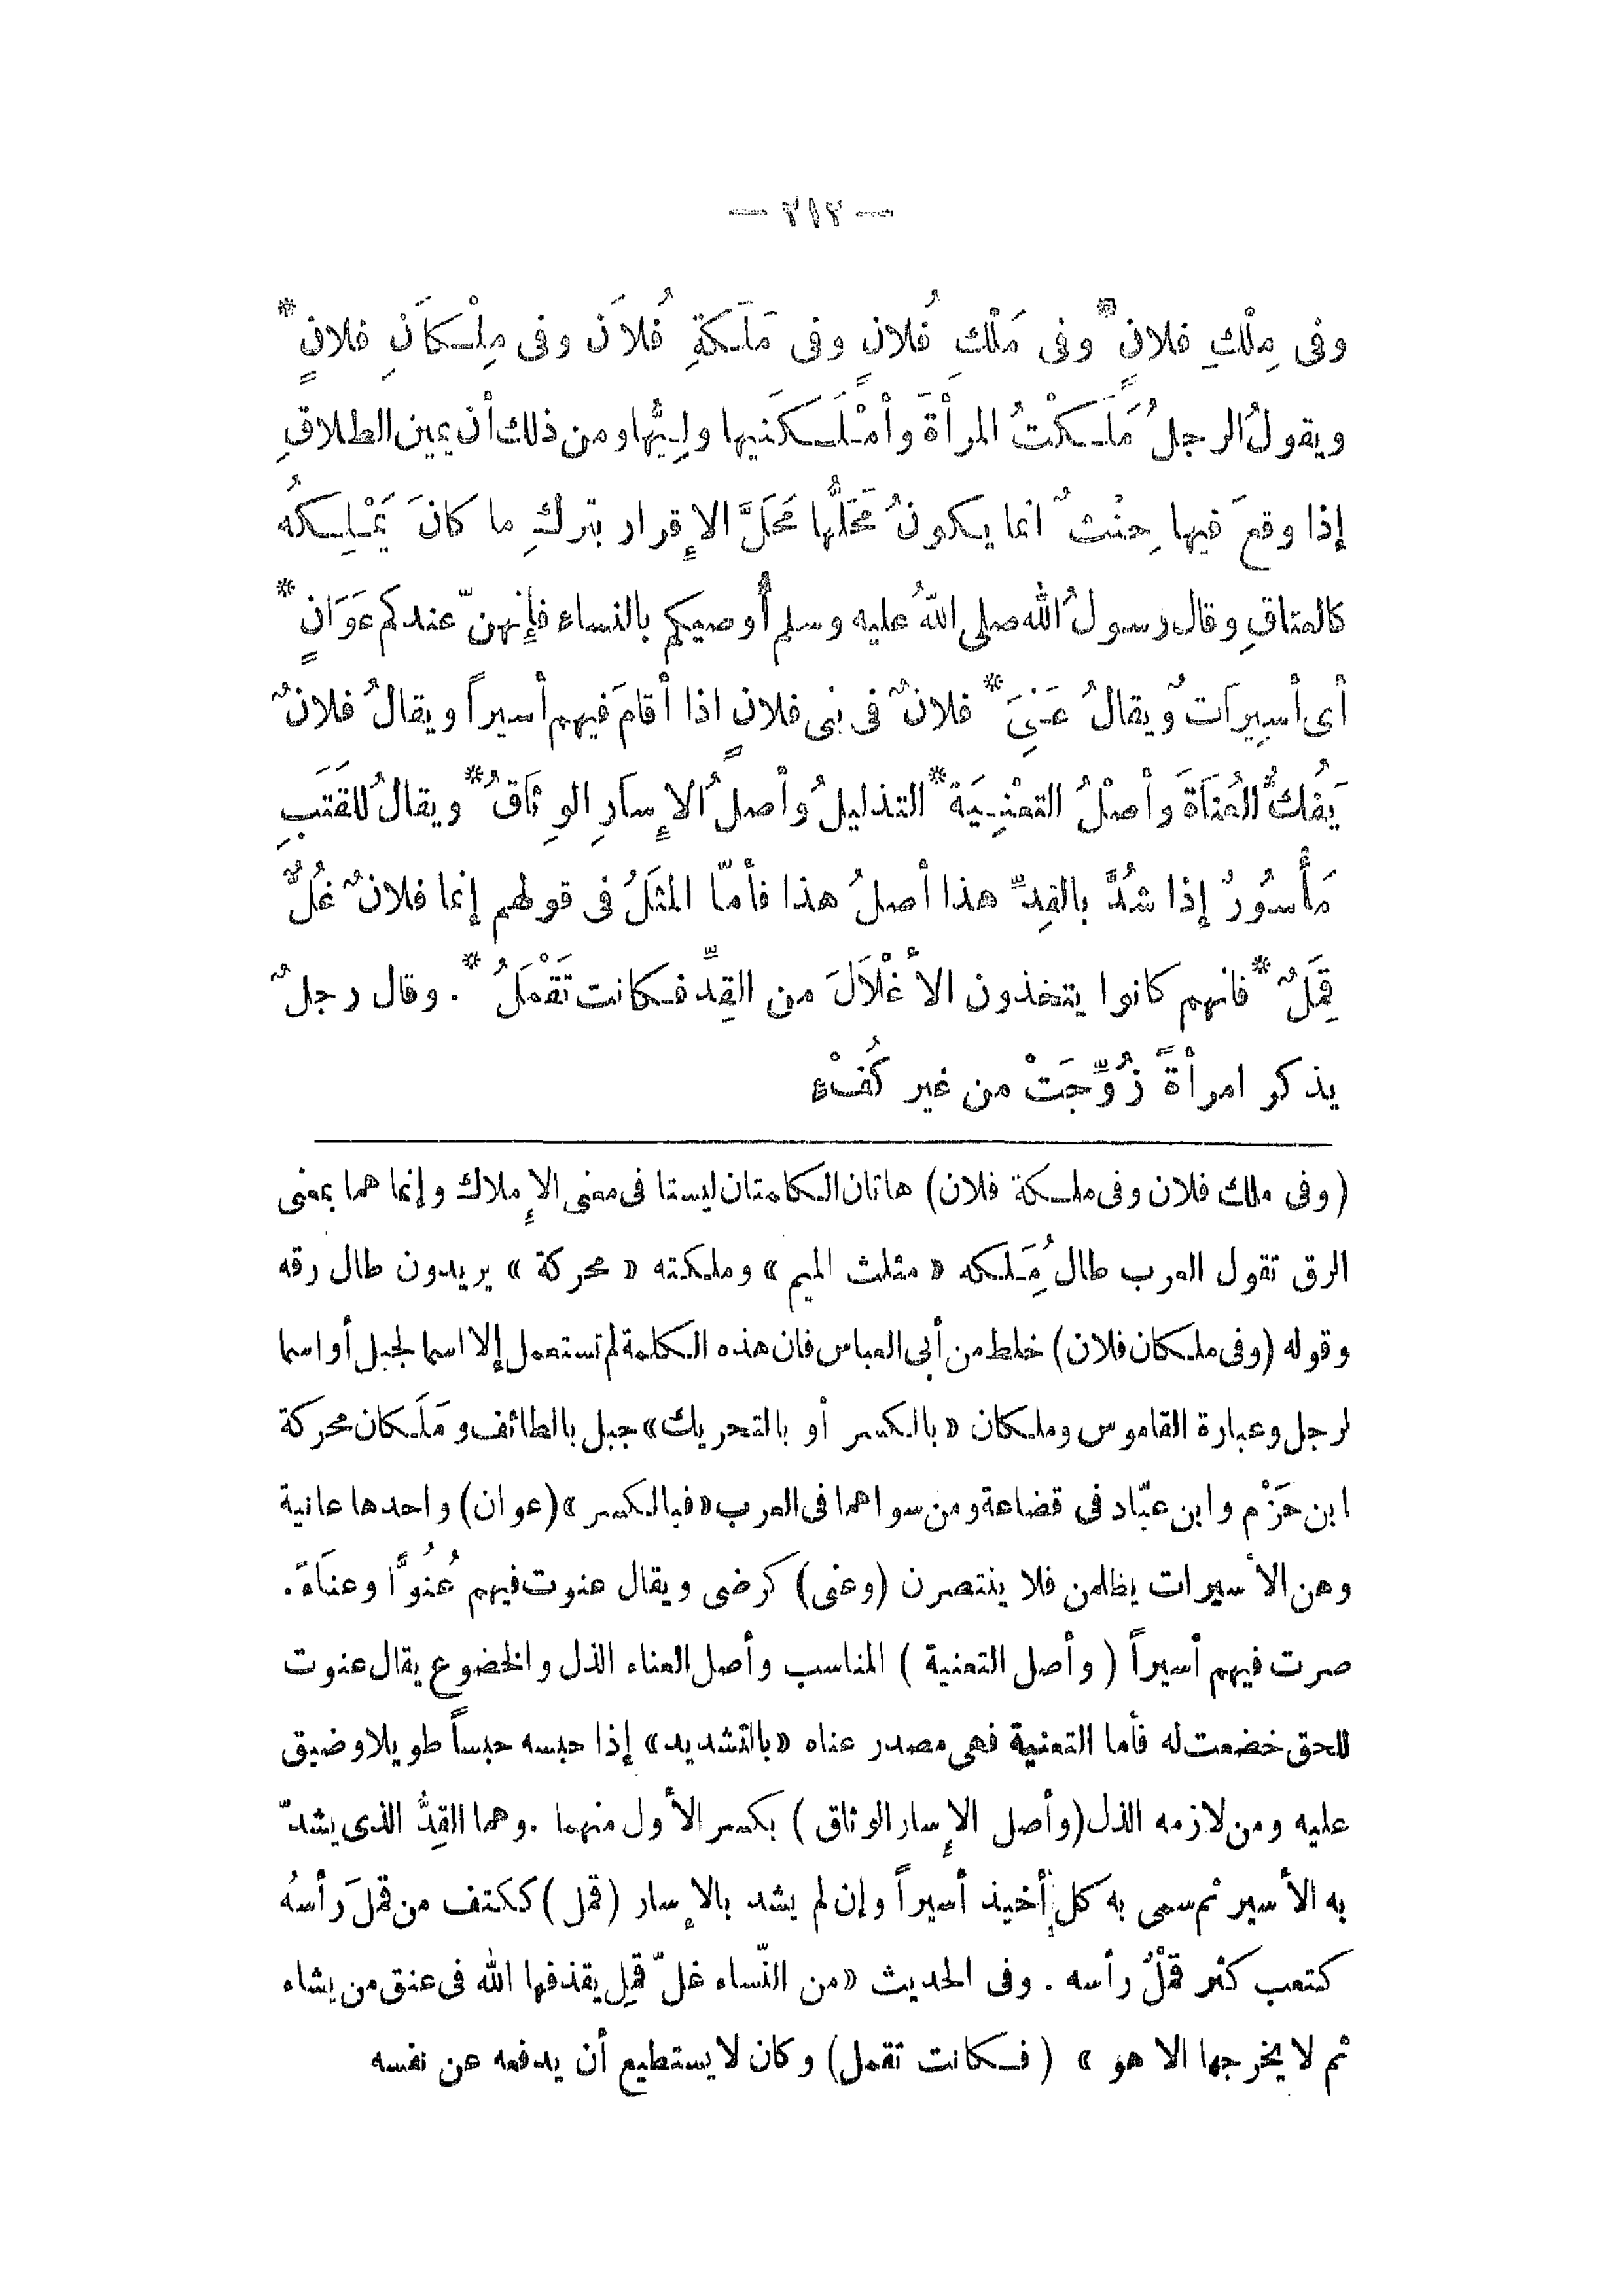 — ٢١٢ —
وفى مِلْكِ فلانٍ* وفى مَلْكِ فُلانٍ وفى مَلَكَةِ فُلاَن وفى مِلْكَانِ فلانٍ*
ويقولُ الرجلُ مَلَكْتُ المرأةَ وأمْلَكَنيها ولِيُّها ومن ذلك أن يمين الطلاقِ
إذا وقعَ فيها حِنْثٌ انما يكونُ مَحَلُّها مَحَلَّ الإقرار بتركِ ما كانَ يَمْلِكهُ
كالعتاقِ وقال رسولُ الله صلى اللهُ عليه وسلم أُوصيكم بالنساء فإنهنّ عندكم عَوَانٍ*
أى أسِيرَاتٌ ويقالُ عَنِىَ* فلانٌ فى بنى فلانٍ اذا أقامَ فيهم أسيراً ويقالُ فلانٌ
يَفُكُّ العُنَاةَ وأصْلُ التعْنِيَة* التذليلُ وأصلُ الإسَارِ الوِثَاقُ* ويقالُ للقَتَبِ
مَأْسُورٌ إذا شُدَّ بالقِدِّ هذا أصلُ هذا فأمّا المثَلُ فى قولهم إنما فلانٌ غُلٌّ
قَمِلٌ* فانهم كانوا يتخذون الأغْلاَلَ من القِدِّ فكانت تَقْمَلُ*. وقال رجلٌ
يذكر امرأةً زُوِّجَتْ من غير كُفْءٍ
(وفى ملك فلان وفى ملكة فلان) هاتان الكلمتان ليستا فى معنى الإملاك وإنما هما بمعنى
الرق تقول العرب طال مُِلَكه «مثلث الميم» وملكته «محركة» يريدون طال رقه
وقوله (وفى ملكان فلان) خلط من أبى العباس فان هذه الكلمة لم تستعمل إلا اسما لجبل أو اسما
لرجل وعبارة القاموس وملكان «بالكسر أو بالتحريك» جبل بالطائف ومَلَكان محركة
ابن حَزْم وابن عبّاد فى قضاعة ومن سواهما فى العرب «فبالكسر» (عوان) واحدها عانية
وهن الأسيرات يظلمن فلا ينتصرن (وعنى) كرضى ويقال عنوت فيهم عُنُوًّا وعنَاءً.
صرت فيهم أسيراً (وأصل التعنية) المناسب وأصل العناء الذل والخضوع يقال عنوت
للحق خضعت له فأما التعنية فهى مصدر عناه «بالتشديد» إذا حبسه حبساً طويلا وضيق
عليه ومن لازمه الذل (وأصل الإسار الوثاق) بكسر الأول منهما. وهما القِدُّ الذى يشدّ
به الأسير ثم سمى به كل أخيذ أسيراً وإن لم يشد بالإسار (قمل) ككتف من قمل رَأسهُ
كتعب كثر قمْلُ رأسه. وفى الحديث «من النّساء غلّ قَمِل يقذفها الله فى عنق من يشاء
ثم لا يخرجها الا هو» (فكانت تقمل) وكان لا يستطيع أن يدفعه عن نفسه